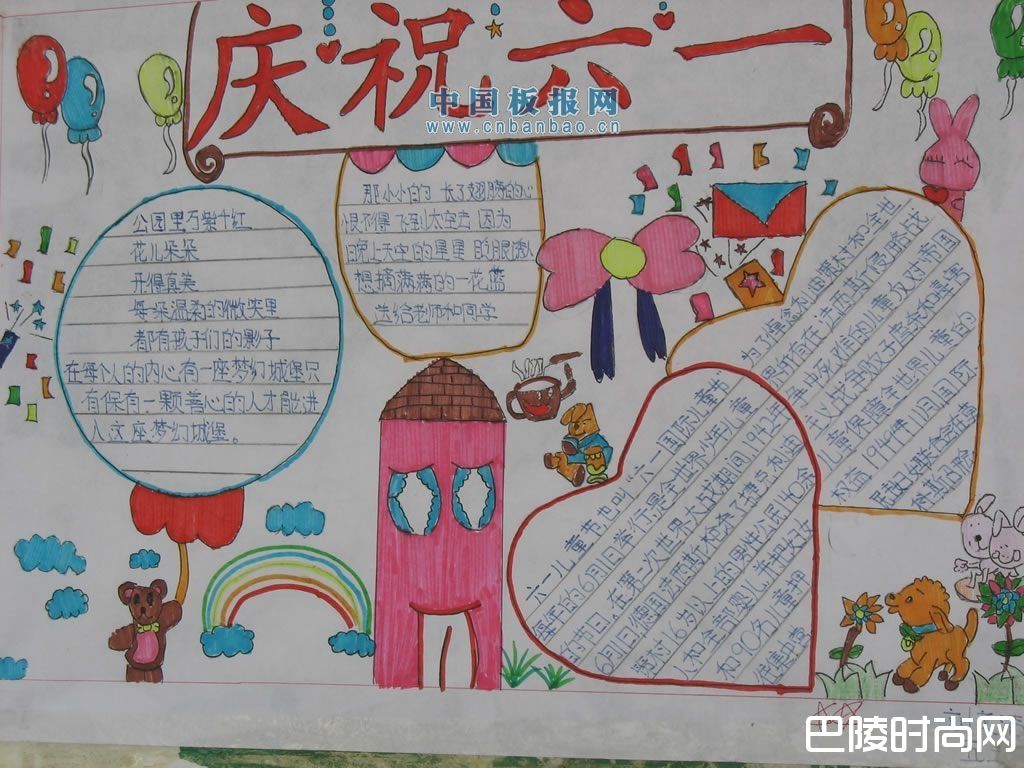 庆祝六一
中国板报网
www.cnbanbao.cn
公园里万紫千红
花儿朵朵
开得真美
每朵温柔的微笑里
都有孩子们的影子
在每个人的内心有一座梦幻城堡只
有保有一颗善心的人才能进
入这座梦幻城堡。
那小小的 长了翅膀的心
恨不得飞到太空去 因为
晚上天空的星星
想摘满满的一花篮
送给老师和同学
六一儿童节也叫"六一国际儿童节"
每年的6月1日举行是全世界少年儿童
的节日,在第二次世界大战期间,1942年
6月
16岁以上的男性公民140余
人和全部婴儿并把妇女
和90名儿童押
往集中营
为了悼念利迪策村和全世
界所有在法西斯
战争中死难的儿童反对帝国
主义战争贩子虐杀和毒害
儿童保障全世界儿童的
权益1949年11月国际
巴陵时尚网